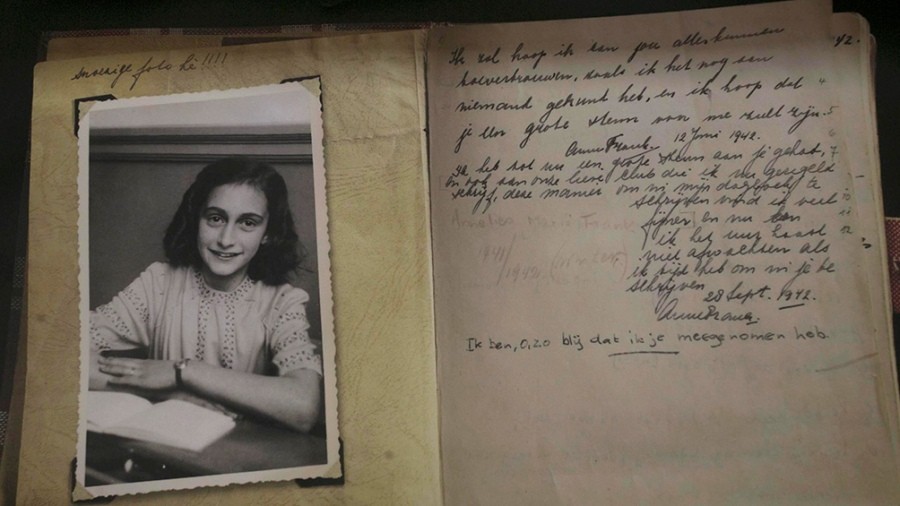 Snoezige foto hè!!!!
42.
Ik zal hoop ik aan jou alles kunnen
toevertrouwen, zoals ik het nog aan
niemand gekund heb, en ik hoop dat
je een grote steun van me zult zijn.
Anne Frank. 12 Juni 1942.
Ik heb tot nu een grote steun aan je gehad,
en ook aan onze lieve club die ik nu geregeld
schrijf, deze manier om in mijn dagboek te
schrijven vind ik veel
fijner en nu kan
ik het uur haast
niet afwachten als
ik tijd heb om in je te
schrijven
28 Sept. 1942.
Anne Frank.
Ik ben, o, zo blij dat ik je meegenomen heb.